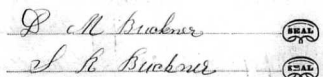 D M Buckner SEAL
S R Buckner SEAL